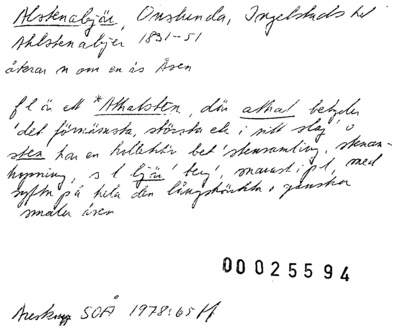 Alstenabjär, Onslunda, Ingelstads hd
Ahlstenabjer 1831-51
åkrar n om en ås Åsen
f l är ett *Athalsten, där athal betyder
'det förnämsta, största etc i sitt slag' o
sten har en kollektiv bet 'stensamling, stenan-
hopning, s l bjär 'berg', snarast i pl, med
syftn på hela den långsträckta, ganska
smala åsen
00025594
SOÅ 1978:65 ff